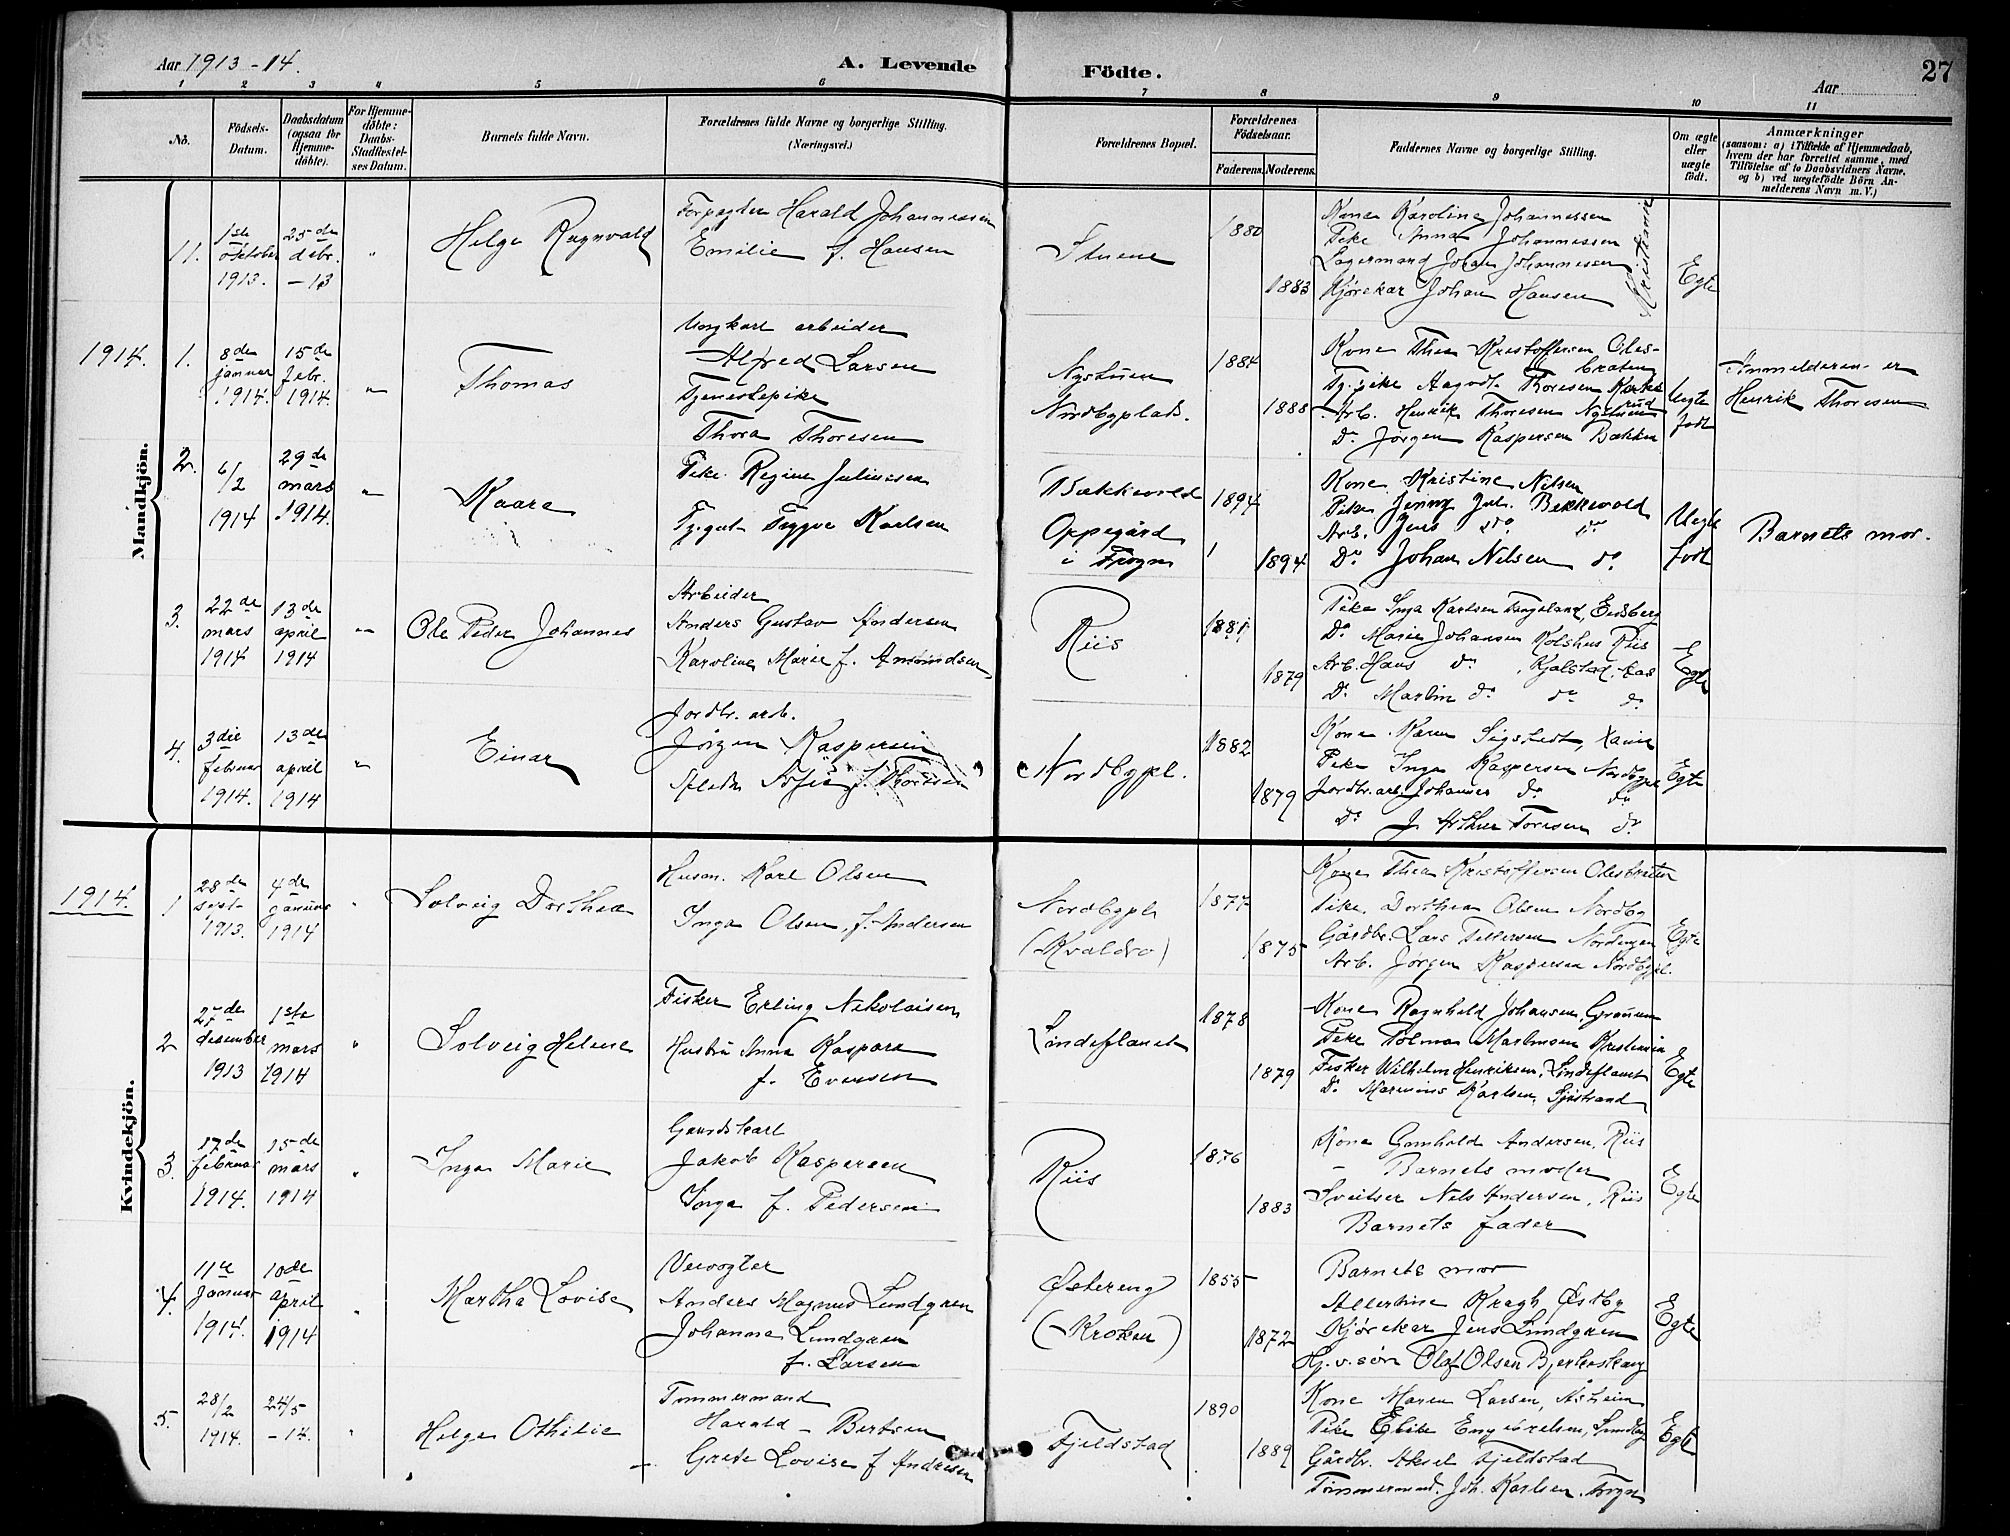 Aar 1913-14.
A. Levende
Födte.
Aar
27
1 2 3 4 5 6 7 8 9 10 11
No.
Födsels-
Datum.
Daabsdatum
(ogsaa for
Hjemme-
döbte).
For Hjemme-
döbte:
Daabs-
Stadfæstel-
ses Datum.
Barnets fulde Navn.
Forældrenes fulde Navne og borgerlige Stilling.
(Næringsvei.)
Forældrenes Bopæl.
Forældrenes
Födselsaar.
Faderens. Moderens.
Faddernes Navne og borgerlige Stilling.
Om ægte
eller
uægte
födt.
Anmærkninger
(saasom: a) i Tilfælde af Hjemmedaab,
hvem der har forrettet samme, med
Tilföielse af to Daabsvidners Navne,
og b) ved uægtefödte Börn An-
melderens Navn m. V.)
Mandkjön.
11.
1ste
Oktober
1913.
25de
debr.
-13
"
Helge Ragnvald
Forpagter Harald Johannessen
Emilie f. Hansen
Stuene
1880
1883
Kone Karoline Johannessen
Pike Anna Johannessen
Lagermand Johan Johannessen
Kjørekar Johan Hansen
Kristiania
Egte
1914.
1.
8de
januar
1914.
15de
febr.
1914.
"
Thomas
Ungkarl arbeider
Alfred Larsen
Tjenestepike
Thora Thoresen
Nystuen
Nordbyplads.
1884
1888
Kone Thea Kristoffersen Oles-
braten
Tj.pike Aagot Thoresen
Arb. Henrik Thoresen Nystuen
Do Jørgen Kaspersen Bakken
Uegte
født
Anmelderen er
Henrik Thoresen
2.
6/2
1914
29de
mars
1914.
"
Kaare
Pike Regine Juliussen
Tj.gut Trygve Karlsen
Bækkevold
Oppegård
i Frogn
1894
1894
Kone Kristine Nilsen
Pike Jenny Jul. Bekkevold
Arb. Jens do do
Do Johan Nilsen do
Uegte
født
Barnets mor.
3.
22de
mars
1914
13de
april
1914
"
Ole Peder Johannes
Arbeider
Anders Gustav Andersen
Karoline Marie f. Amundsen
Riis
1881
1879
Pike Inga Karlsen Eidsberg
Do Marie Johansen Kolshus Riis
Arb. Hans do Kjølstad, Aas
Do Martin do do do
Egte
4.
3die
februar
1914.
13de
april
1914
"
Einar
Jordbr. arb.
Jörgen Kaspersen
Sofie f. Thoresen
Nordbypl.
1882
1879
Kone Karen Sigstedt,
Pike Inga Kaspersen Nordbypl.
Jordbr. arb. Johannes do do
Do J. Arthur Toresen do
Egte
Kvindekjön.
1914.
1
28de
sept.
1913.
4de
januar
1914
"
Solveig Dorthea
Husm. Karl Olsen
Inga Olsen, f. Andersen
Nordbypl.
1877
1875
Kone Thea Kristoffersen Olesbråten
Pike, Dorthea Olsen Nordby
Gårdbr. Lars Pettersen Nordengen
Arb. Jørgen Kaspersen Nordbypl.
Egte
2
27de
desember
1913
1ste
mars
1914
"
Solveig Helene
Fisker Erling Nikolaisen
Hustru Anna Kaspara
f. Evensen
Lindeflaaet
1878
1879
Kone Ragnhild Johansen,
Pike Tolma Martinsen Kristiania
Fisker Wilhelm Henriksen, Lindeflaaet
Do Marinius Karlsen, Sjøstrand
Egte
3.
17de
februar
1914.
15de
mars
1914
"
Inga Marie
Gaardskarl
Jakob Kaspersen
Inga f. Pedersen
Riis
1876
1883
Kone Gunhild Andersen, Riis
- Barnets moder
Sveitser Nils Andersen, Riis
Barnets fader
Egte
4.
11te
januar
1914.
10de
april
1914
"
Martha Lovise
Veivogter
Anders Magnus Lundgren
Johanne Lundgren
f. Larsen
Østereng
(Kroken)
1855
1872
Barnets mor
Albertine Kragh, Østby
Kjørekar Jens Lundgren
Hj.v.søn Olaf Olsen
Egte
5.
28/2
1914.
24/5
-14.
"
Helga Othilie
Tømmermand
Harald - Bertsen
- Grete Lovise f. Andresen
Fjeldstad
1890
1889
Kone Maren Larsen, Åsheim
Pike Elise Engebretsen, Sundby
Gårdbr. Aksel Fjeldstad
Tømmermand. Joh. Karlsen, Frogn
Egte